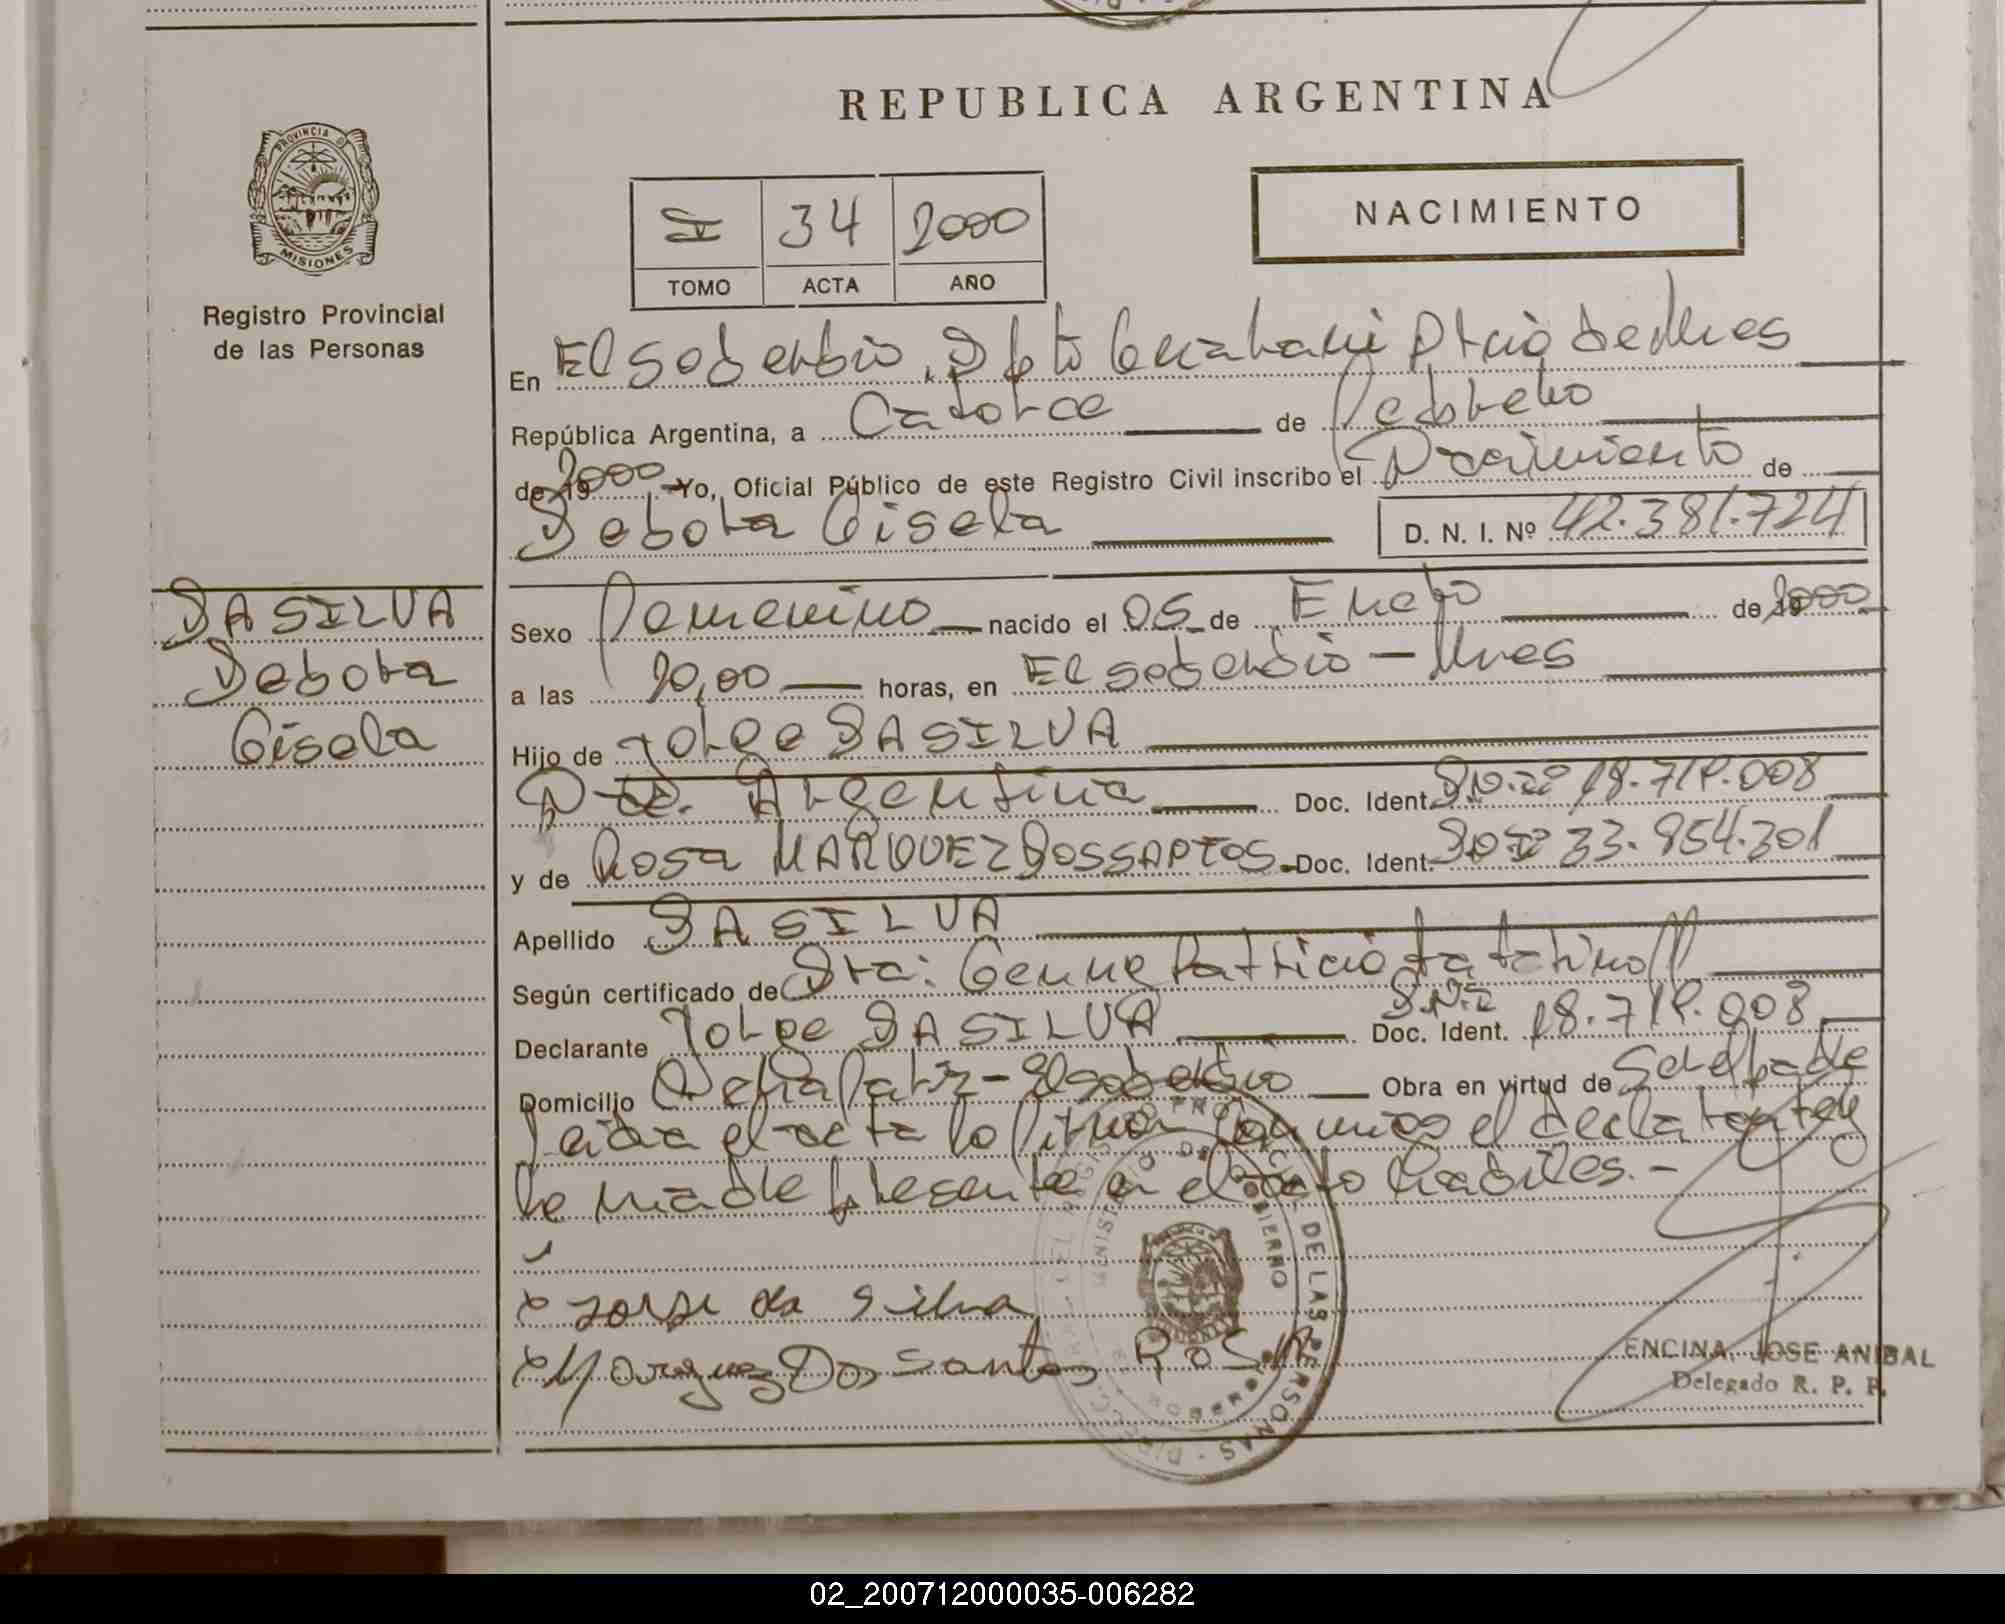 REPUBLICA ARGENTINA
PROVINCIA DE
MISIONES
Registro Provincial
de las Personas
I 34 2000
TOMO ACTA AÑO
NACIMIENTO
En El Soberbio, Dpto Guarani Pcia de Mnes
República Argentina, a Catorce de Febrero
de 19 2000 Yo, Oficial Público de este Registro Civil inscribo el Nacimiento de
Debora Gisela D. N. I. Nº 42.381.724
DA SILVA
Debora
Gisela
Sexo Femenino nacido el 05 de Enero de 2000
a las 20,00 horas, en El Soberbio - Mnes
Hijo de Jorge DA SILVA
Nac. Argentina Doc. Ident. D.N.I. 18.719.008
y de Rosa MARQUEZ DOS SANTOS Doc. Ident. 33.854.301
Apellido DA SILVA
Según certificado de Dra:
Declarante Jorge DA SILVA D.N.I. Doc. Ident. 18.719.008
Domicilio El Soberbio Obra en virtud de ser el padre
Leida el acta lo firman conmigo el declarante y
la madre presente en el acto
x Jorge da Silva
x Marquez Dos Santos ROSA
DE LAS PERSONAS
ENCINA, JOSE ANIBAL
Delegado R. P. P.
02_200712000035-006282